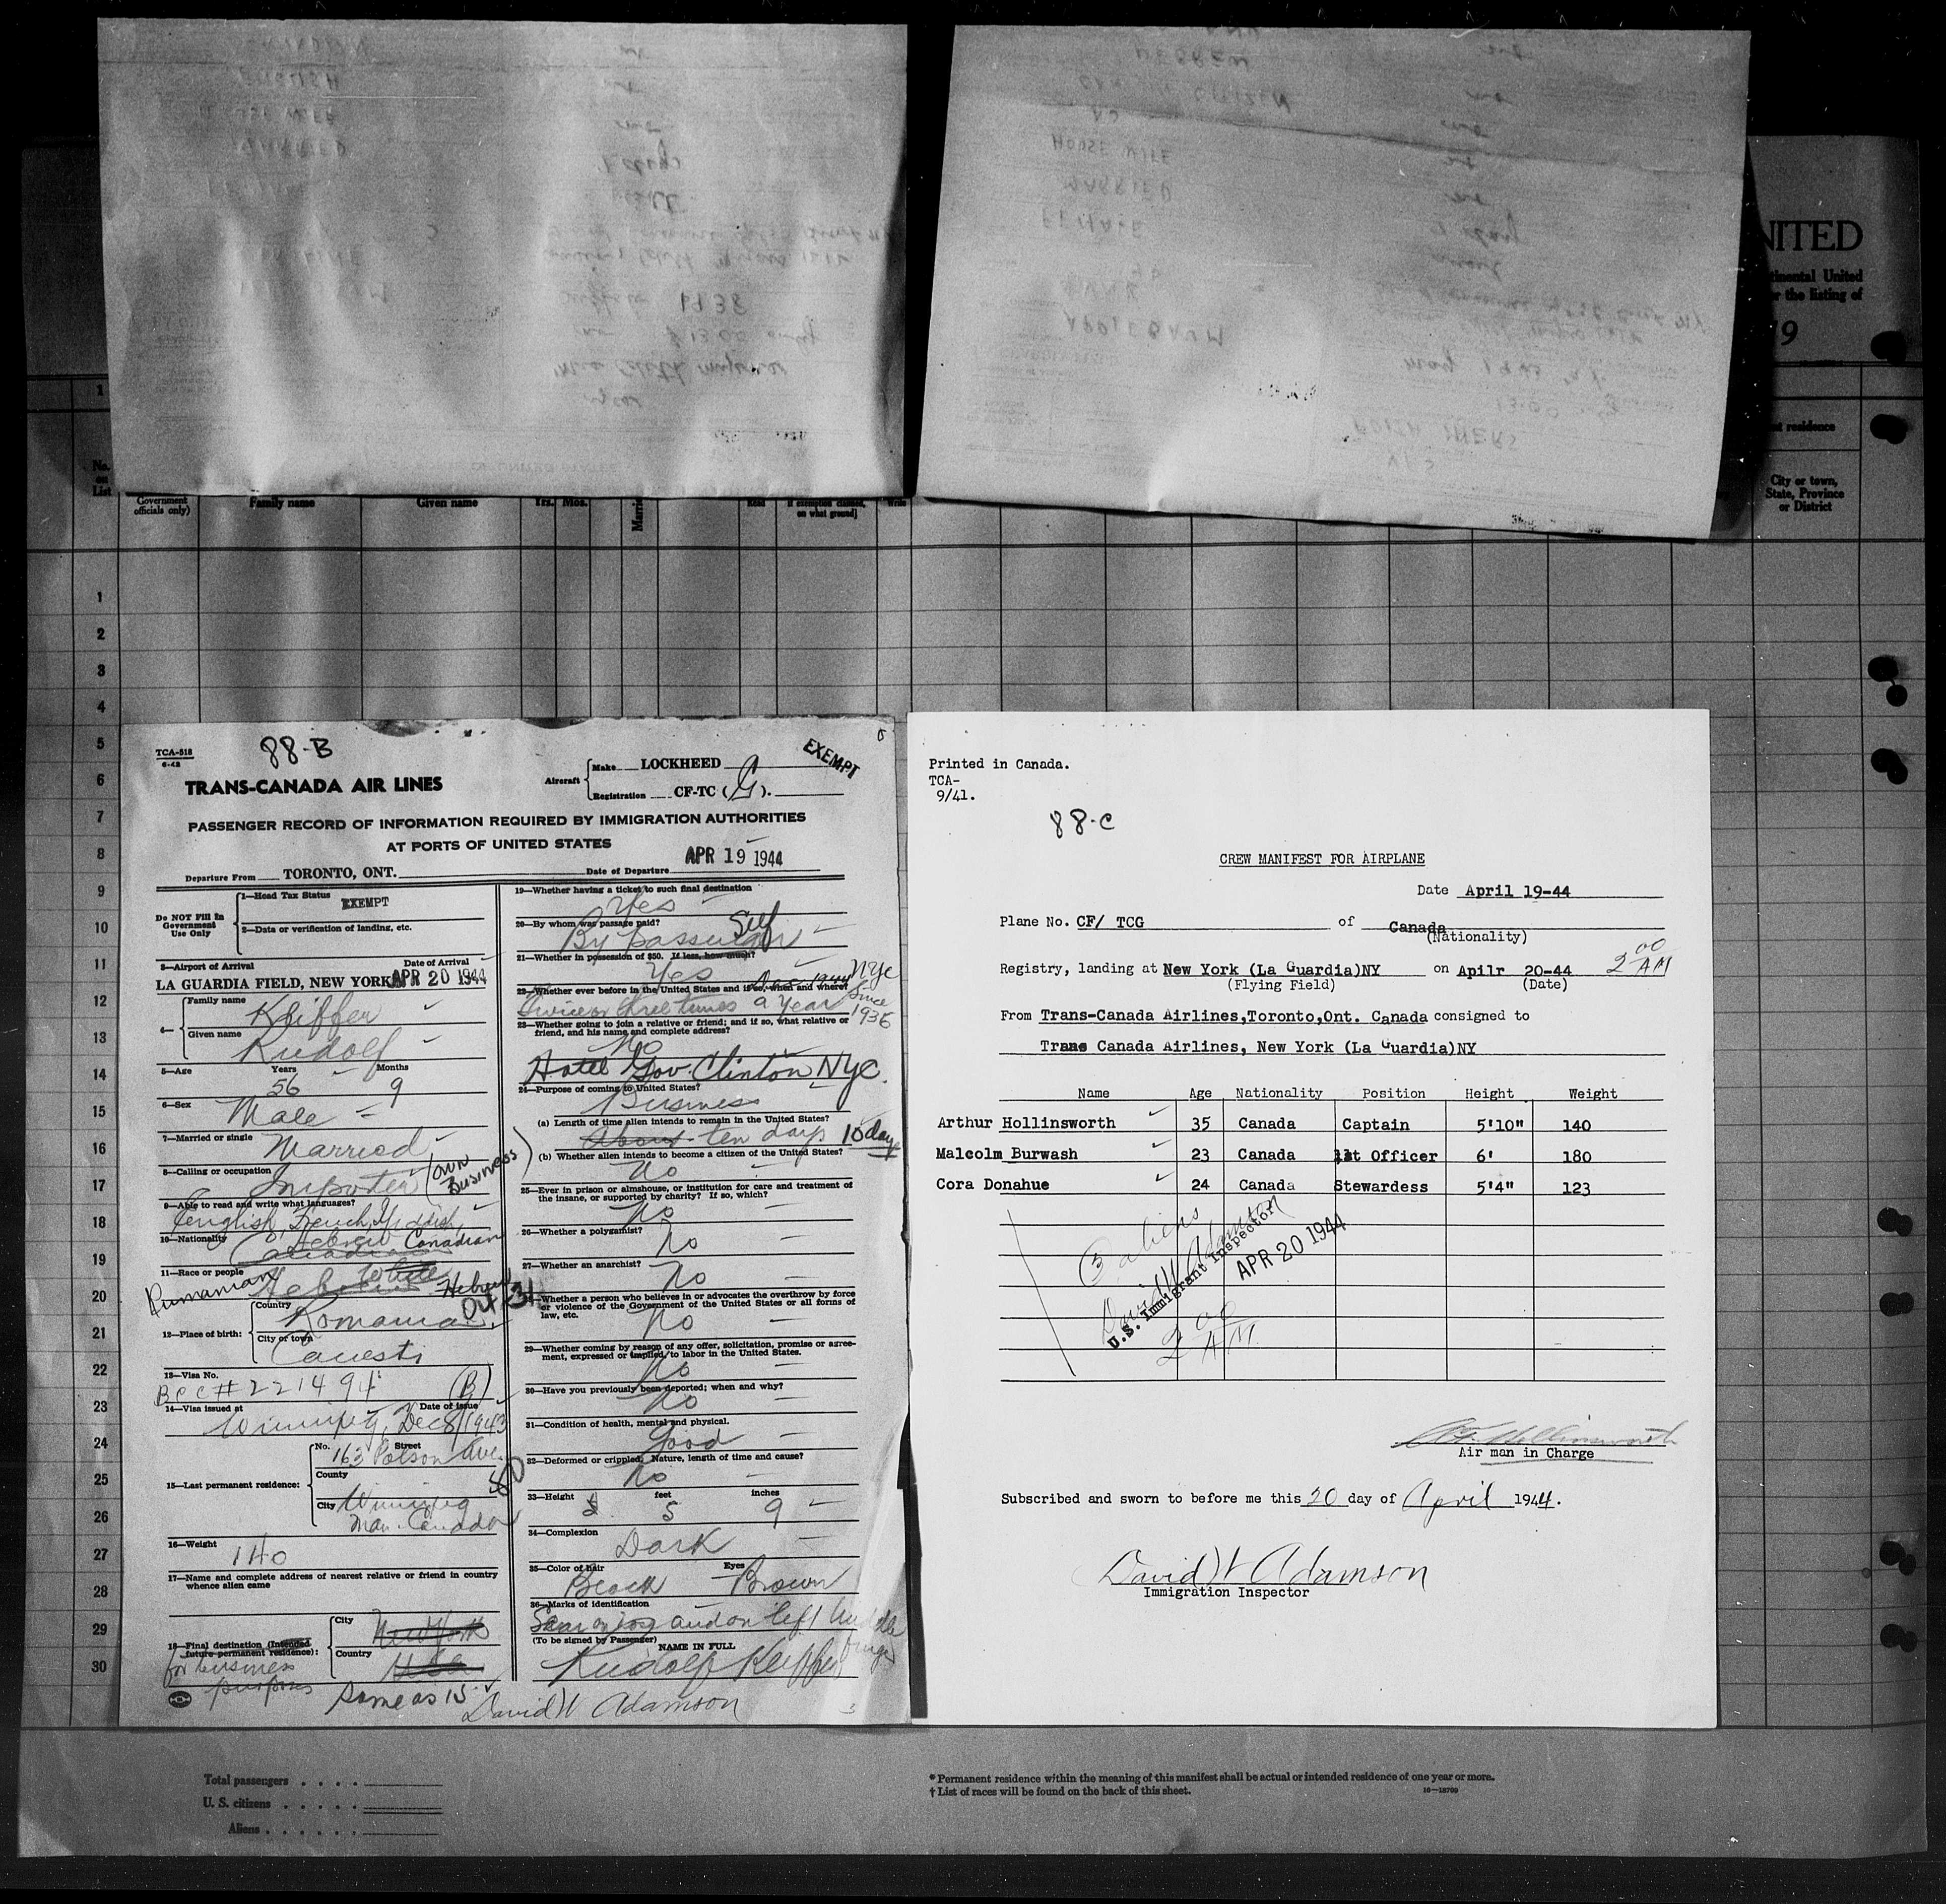 NITED
tinental United
r the listing of
9
1
t residence
No. on List
Government officials only)
Family name
Given name
Yrs.
Mos.
Read
on what ground]
Write
City or town, State, Province or District
1
2
3
4
5
6
7
8
9
10
11
12
13
14
15
16
17
18
19
20
21
22
23
24
25
26
27
28
29
30
TCA-518
6-42
88-B
EXEMPT
TRANS-CANADA AIR LINES
Aircraft
Make LOCKHEED
Registration CF-TC (G).
PASSENGER RECORD OF INFORMATION REQUIRED BY IMMIGRATION AUTHORITIES
AT PORTS OF UNITED STATES
Departure From TORONTO, ONT. Date of Departure APR 19 1944
Do NOT Fill in Government Use Only
1—Head Tax Status EXEMPT
2—Data or verification of landing, etc.
3—Airport of Arrival Date of Arrival
LA GUARDIA FIELD, NEW YORK APR 20 1944
4—
Family name
Given name
Rudolf
5—Age Years Months
56 9
6—Sex
Male
7—Married or single
Married
8—Calling or occupation
Importer (own business)
9—Able to read and write what languages?
English, French, Yiddish,
Hebrew
10—Nationality
Canadian Canadian
11—Race or people
Rumanian White Hebrew
12—Place of birth:
Country
Romania
City or town
13—Visa No.
BCC # 221494 (B)
14—Visa issued at Date of issue
Winnipeg, Dec 8/1943
15—Last permanent residence:
No. Street
163 Polson Ave.
County
City Winnipeg
Man. Canada
16—Weight
140
17—Name and complete address of nearest relative or friend in country
whence alien came
18—Final destination (Intended
future permanent residence):
City
New York
Country
USA
for business
purposes
Same as 15
19—Whether having a ticket to such final destination
Yes
20—By whom was passage paid?
By passenger Self
21—Whether in possession of $50. If less, how much?
Yes
22—Whether ever before in the United States and if so, when and where?
NYC
Twice or three times a year since 1936
23—Whether going to join a relative or friend; and if so, what relative or
friend, and his name and complete address?
No
Hotel Gov. Clinton NYC.
24—Purpose of coming to United States?
Business
(a) Length of time alien intends to remain in the United States?
About ten days 10 days
(b) Whether alien intends to become a citizen of the United States?
No
25—Ever in prison or almshouse, or institution for care and treatment of
the insane, or supported by charity? If so, which?
No
26—Whether a polygamist?
No
27—Whether an anarchist?
No
28—Whether a person who believes in or advocates the overthrow by force
or violence of the Government of the United States or all forms of
law, etc.
No
29—Whether coming by reason of any offer, solicitation, promise or agree-
ment, expressed or implied, to labor in the United States.
No
30—Have you previously been deported; when and why?
No
31—Condition of health, mental and physical.
Good
32—Deformed or crippled. Nature, length of time and cause?
No
33—Height feet inches
5 9
34—Complexion
Dark
35—Color of hair Eyes
Black Brown
36—Marks of identification
and on left middle finger
(To be signed by Passenger) NAME IN FULL
David W Adamson
Printed in Canada.
TCA-
9/41.
88-C
CREW MANIFEST FOR AIRPLANE
Date April 19-44
Plane No. CF/ TCG of Canada
(Nationality)
Registry, landing at New York (La Guardia)NY on Apilr 20-44 2 00 AM
(Flying Field) (Date)
From Trans-Canada Airlines,Toronto,Ont. Canada consigned to
Trans Canada Airlines, New York (La Guardia)NY
Name Age Nationality Position Height Weight
Arthur Hollinsworth 35 Canada Captain 5'10" 140
Malcolm Burwash 23 Canada 1st Officer 6' 180
Cora Donahue 24 Canada Stewardess 5'4" 123
3 aliens
David W Adamson
U.S. Immigrant Inspector
APR 20 1944
2 00 AM.
Air man in Charge
Subscribed and sworn to before me this 20 day of April 1944.
David W Adamson
Immigration Inspector
Total passengers
U. S. citizens
Aliens
* Permanent residence within the meaning of this manifest shall be actual or intended residence of one year or more.
† List of races will be found on the back of this sheet. 16—18700